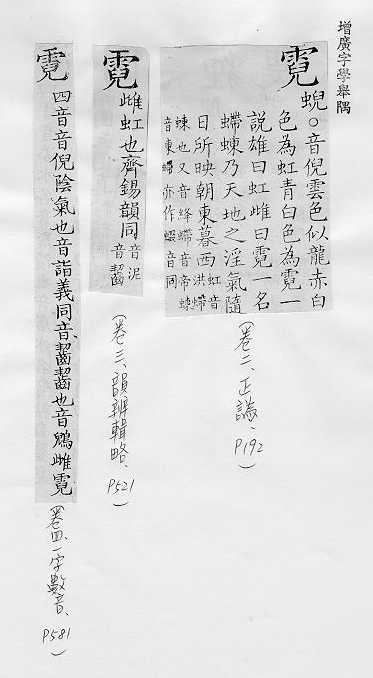 增廣字學舉隅
霓
蜺○音倪雲色似龍赤白
色為虹青白色為霓一
說雄曰虹雌曰霓一名
螮蝀乃天地之淫氣隨
日所映朝東暮西虹音洪螮
蝀也又音絳螮音帝蝀
音東螮亦作蝃音同
(卷二、正譌、P192)
霓
雌虹也齊錫韻同音泥音齧
(卷三、韻辨輯略、P521)
霓
四音音倪陰氣也音詣義同音齧齧也音鶂雌霓
(卷四、一字數音、P581)